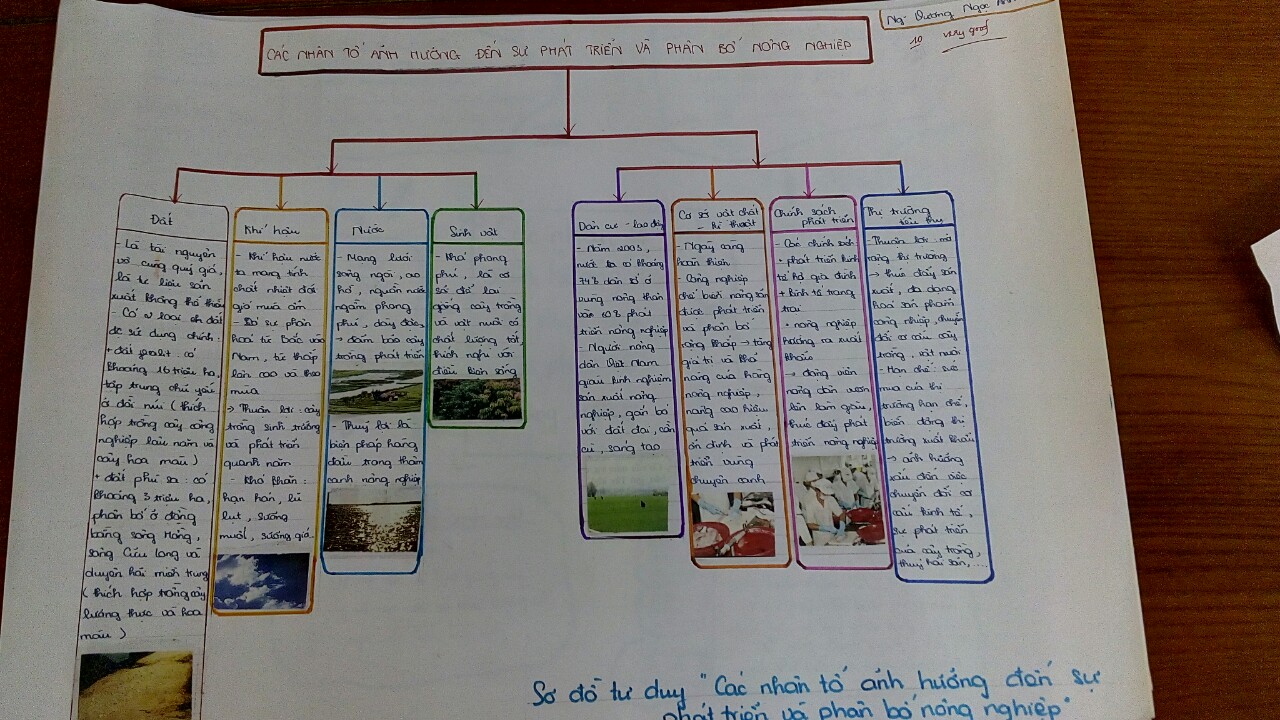 Ng. Dương Ngọc
10 very good
CÁC NHÂN TỐ ẢNH HƯỞNG ĐẾN SỰ PHÁT TRIỂN VÀ PHÂN BỐ NÔNG NGHIỆP
Đất
- Là tài nguyên
vô cùng quý giá,
là tư liệu sản
xuất không thể
- Có 2 loại
đc sử dụng chính:
+ đất feralit: có
khoảng 16 triệu ha,
tập trung chủ yếu
ở đồi núi (thích
hợp trồng cây công
nghiệp lâu năm và
cây hoa màu)
+ đất phù sa: có
khoảng 3 triệu ha,
phân bố ở đồng
bằng sông Hồng,
sông Cửu Long và
duyên hải miền trung
(thích hợp trồng cây
lương thực và hoa
màu)
Khí hậu
- Khí hậu nước
ta mang tính
chất nhiệt đới
gió mùa ẩm
- Có sự phân
hoá từ Bắc vào
Nam, từ thấp
lên cao và theo
mùa
→ Thuận lợi: cây
trồng sinh trưởng
và phát triển
quanh năm
- Khó khăn:
hạn hán, lũ
lụt, sương
muối, sương giá.
Nước
- Mạng lưới
sông ngòi, ao
hồ, nguồn nước
ngầm phong
phú, dày đặc,
→ đảm bảo cây
trồng phát triển
- Thuỷ lợi là
biện pháp hàng
đầu trong thâm
canh nông nghiệp
Sinh vật
- Khá phong
phú, là cơ
sở để lai
giống cây trồng
và vật nuôi có
chất lượng tốt,
thích nghi với
điều kiện sống
Dân cư - lao động
- Năm 2003,
nước ta có khoảng
74% dân số ở
vùng nông thôn
vẫn 60% phát
triển nông nghiệp
- Người nông
dân Việt Nam
giàu kinh nghiệm
sản xuất nông
nghiệp, gắn bó
với đất đai, cần
cù, sáng tạo
Cơ sở vật chất
- kĩ thuật
- Ngày càng
hoàn thiện
- Công nghiệp
chế biến nông sản
được phát triển
và phân bố
rộng khắp → tăng
giá trị và khả
năng của hàng
nông nghiệp,
nâng cao hiệu
quả sản xuất,
ổn định và phát
triển vùng
chuyên canh
Chính sách
phát triển
- Các chính sách
+ phát triển kinh
tế hộ gia đình
+ kinh tế trang
trại
+ nông nghiệp
hướng ra xuất
khẩu
→ động viên
nông dân vươn
lên làm giàu,
thúc đẩy phát
triển nông nghiệp
Thị trường
tiêu thụ
- Thuận lợi: mở
rộng thị trường
→ thúc đẩy sản
xuất, đa dạng
hoá sản phẩm
công nghiệp, chuyển
đổi cơ cấu cây
trồng, vật nuôi
- Hạn chế: sức
mua của thị
trường hạn chế,
biến động thị
trường xuất khẩu
→ ảnh hưởng
xấu đến việc
chuyển đổi cơ
cấu kinh tế,
sự phát triển
của cây trồng,
thuỷ hải sản,....
Sơ đồ tư duy "Các nhân tố ảnh hưởng đến sự
phát triển và phân bố nông nghiệp"